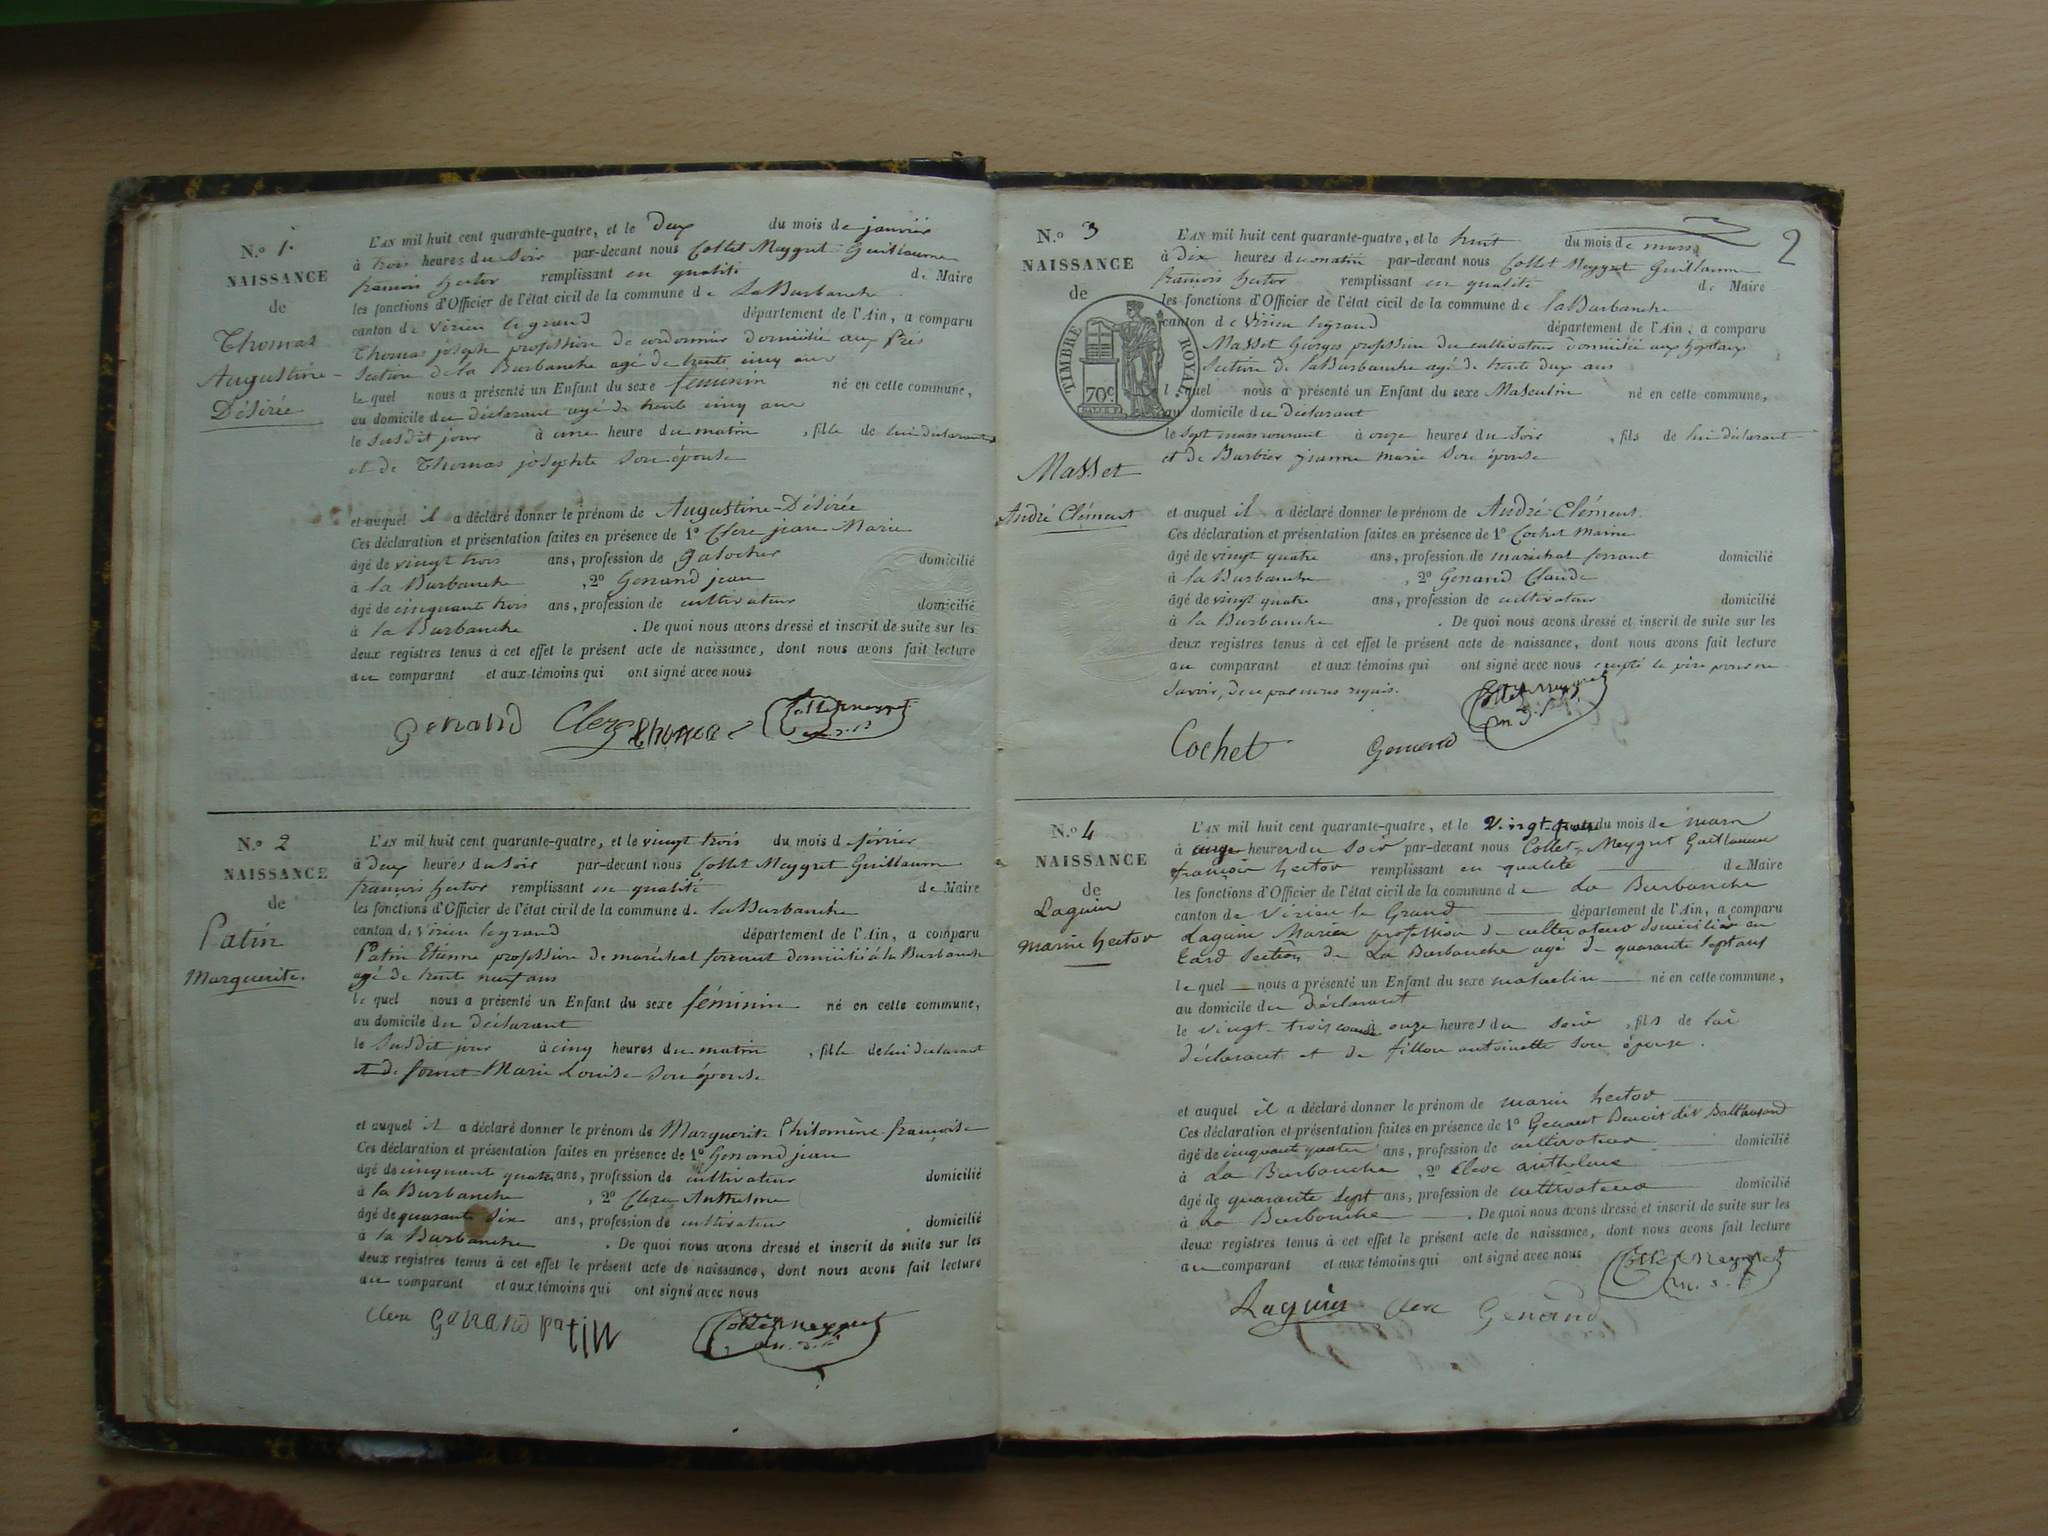 N.o 1.
NAISSANCE
de
Thomas
Augustine-
Désirée
L'AN mil huit cent quarante-quatre, et le Deux du mois de janvier
à trois heures du Soir par-devant nous Collet Meygret Guillaume
françois hector remplissant en qualité de Maire
les fonctions d'Officier de l'état civil de la commune de La Burbanche
canton de Virieu le grand département de l'Ain, a comparu
Thomas joseph profession de cordonnier domicilié aux Prés
Section de la Burbanche agé de trente cinq ans
le quel nous a présenté un Enfant du sexe féminin né en cette commune,
au domicile du déclarant agé de trente cinq ans
le susdit jour à une heure du matin , fille de lui déclarant
et de Thomas josephte son épouse
et auquel il a déclaré donner le prénom de Augustine-Désirée
Ces déclaration et présentation faites en présence de 1o Clerc jean Marie
âgé de vingt trois ans, profession de galocher domicilié
à la Burbanche , 2o Genand jean
âgé de cinquante trois ans, profession de cultivateur domicilié
à la Burbanche . De quoi nous avons dressé et inscrit de suite sur les
deux registres tenus à cet effet le présent acte de naissance, dont nous avons fait lecture
au comparant et aux témoins qui ont signé avec nous
Genand Clerc Thomas Collet Meygret
N.o 2
NAISSANCE
de
Patin
Marguerite.
L'AN mil huit cent quarante-quatre, et le vingt trois du mois d février
à Deux heures du Soir par-devant nous Collet Meygret Guillaume
françois hector remplissant en qualité de Maire
les fonctions d'Officier de l'état civil de la commune de la Burbanche
canton de Virieu legrand département de l'Ain, a comparu
Patin Etienne profession de maréchal ferrant domicilié à la Burbanche
agé de trente neuf ans
le quel nous a présenté un Enfant du sexe féminin né en cette commune,
au domicile du déclarant
le susdit jour à cinq heures du matin , fille de lui déclarant
et de Marie Louise son épouse
et auquel il a déclaré donner le prénom de Marguerite Philomène françoise
Ces déclaration et présentation faites en présence de 1o Genand jean
âgé de cinquante quatre ans, profession de cultivateur domicilié
à la Burbanche , 2o Clerc Anthelme
âgé de quarante Six ans, profession de cultivateur domicilié
à la Burbanche . De quoi nous avons dressé et inscrit de suite sur les
deux registres tenus à cet effet le présent acte de naissance, dont nous avons fait lecture
au comparant et aux témoins qui ont signé avec nous
Clerc Genand patin Collet Meygret
2
N.o 3
NAISSANCE
de
TIMBRE ROYAL
70c.
Masset
André Clément
L'AN mil huit cent quarante-quatre, et le huit du mois de mars
à Dix heures du matin par-devant nous Collet Meygret Guillaume
françois hector remplissant en qualité de Maire
les fonctions d'Officier de l'état civil de la commune de la Burbanche
canton de Virieu legrand département de l'Ain, a comparu
Masset Georges profession de cultivateur domicilié aux hopitaux
Section de la Burbanche agé de trente deux ans
lequel nous a présenté un Enfant du sexe Masculin né en cette commune,
au domicile du déclarant
le sept mars courant à onze heures du Soir , fils de lui déclarant
et de Barbier jeanne marie son épouse
et auquel il a déclaré donner le prénom de André Clément
Ces déclaration et présentation faites en présence de 1o Cochet
âgé de vingt quatre ans, profession de maréchal ferrant domicilié
à la Burbanche , 2o Genand Claude
âgé de vingt quatre ans, profession de cultivateur domicilié
à la Burbanche . De quoi nous avons dressé et inscrit de suite sur les
deux registres tenus à cet effet le présent acte de naissance, dont nous avons fait lecture
au comparant et aux témoins qui ont signé avec nous le père pour ne
Savoir, de ce par nous requis.
Collet Meygret
Cochet Genand
N.o 4
NAISSANCE
de
Laguin
marin hector
L'AN mil huit cent quarante-quatre, et le du mois de mars
à heures du soir par-devant nous Collet, Meygret Guillaume
françois hector remplissant en qualité de Maire
les fonctions d'Officier de l'état civil de la commune de La Burbanche
canton de Virieu le Grand département de l'Ain, a comparu
Laguin Marin profession de cultivateur domicilié en
Section de La Burbanche agé de quarante sept ans
le quel nous a présenté un Enfant du sexe masculin né en cette commune,
au domicile du Déclarant
le vingt-trois onze heures du soir , fils de lui
déclarant et de fillon antoinette son épouse.
et auquel il a déclaré donner le prénom de marin hector
Ces déclaration et présentation faites en présence de 1o Genand Benoit dit
âgé de cinquante quatre ans, profession de cultivateur domicilié
à La Burbanche , 2o Clerc anthelme
âgé de quarante sept ans, profession de cultivateur domicilié
à La Burbanche . De quoi nous avons dressé et inscrit de suite sur les
deux registres tenus à cet effet le présent acte de naissance, dont nous avons fait lecture
au comparant et aux témoins qui ont signé avec nous
Collet Meygret
Laguin Clerc Genand